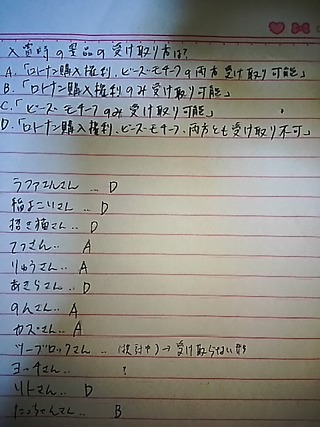 入賞時の景品の受け取り方は?
A.「ロトナン購入権利、ビーズモチーフの両方受け取り可能」
B.「ロトナン購入権利のみ受け取り可能」
C.「ビーズモチーフのみ受け取り可能」
D.「ロトナン購入権利、ビーズモチーフ、両方とも受け取り不可」
ラファエルさん … D
稲よこいさん .. D
招き猫さん .. D
てつさん.. A
りゅうさん.. A
あきらさん.. D
のんさん.. A
カズさん.. A
ツーブロックさん .. (検討中)→受け取らない
ヨーチさん.. ?
リトさん.. D
にっちんさん.. B